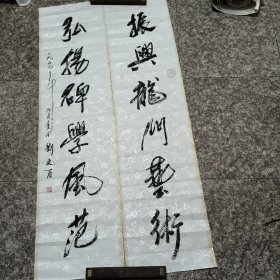 振興龍門藝術
弘揚碑學風范